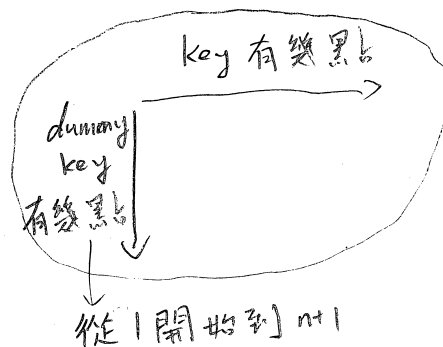 key 有幾點
dummy
key
有幾點
從 1 開始到 n+1